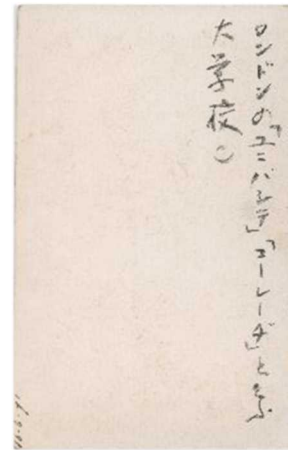 ロンドンの「ユニバシテ」「コーレーヂ」と云ふ
大学校